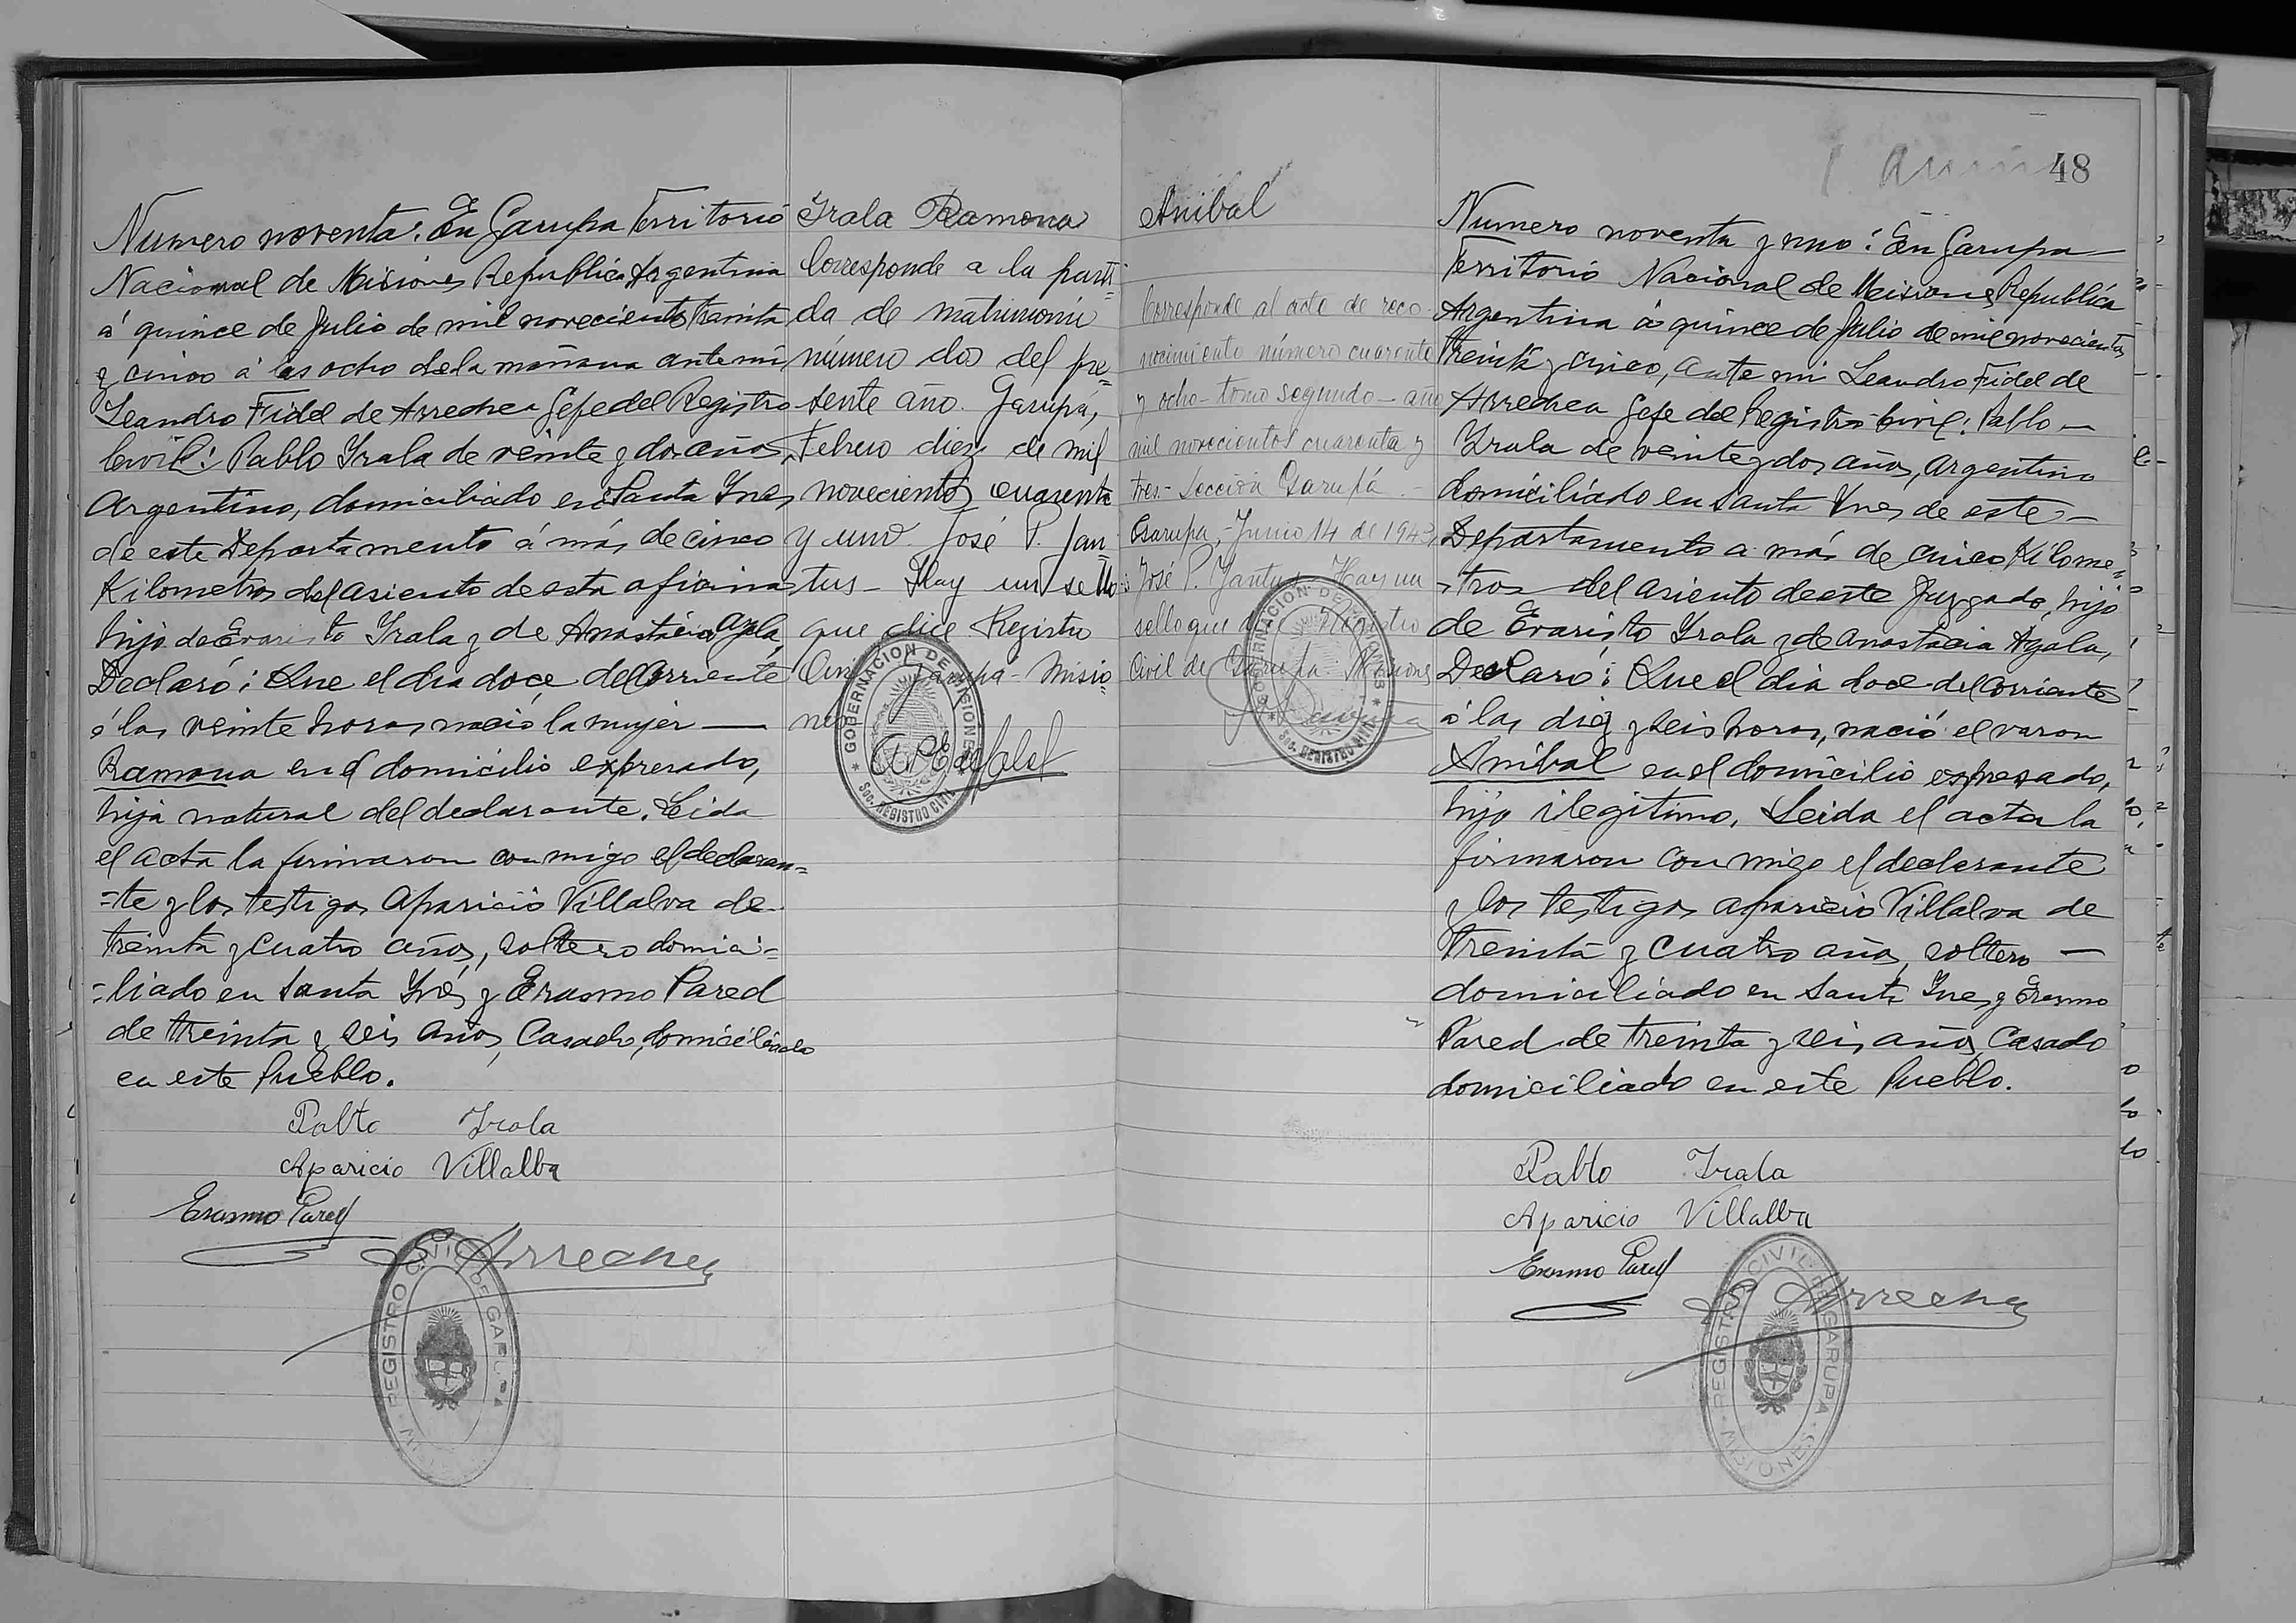 Numero noventa: En Garupa Territorio
Nacional de Misiones Republica Argentina
á quince de Julio de mil novecientos treinta
y cinco á las ocho de la mañana ante mi
Leandro Fidel de Arrechea Gefe del Registro
Civil: Pablo Yrala de veinte y dos años,
Argentino, domiciliado en Santa Ynes,
de este Departamento á más de cinco
Kilometros del asiento de esta oficina
hijo de Evaristo Yrala y de Anastacia Ayala,
Declaró: Que el dia doce del corriente
á las veinte horas nació la mujer —
Ramona en el domicilio expresado,
hija natural del declarante. Leida
el acta la firmaron conmigo el declaran=
=te y los testigos Aparicio Villalva de
treinta y cuatro años, soltero domici=
=liado en Santa Ynés y Erasmo Pared
de treinta y seis años, Casado, domiciliado
en este Pueblo.
Pablo Irala
Aparicio Villalba
Erasmo Pared
Arrechea
REGISTRO CIVIL DE GARUPA
Irala Ramona
Corresponde a la parti-
da de matrimonio
número dos del pre-
sente año. Garupá,
Febrero diez de mil
novecientos cuarenta
y uno. José P. Jan-
tus - Hay un sello
que dice Registro
Garupá - Misio-
nes
GOBERNACION DE MISIONES
Sec. REGISTRO CIVIL
Anibal
Corresponde al acta de reco-
nocimiento número cuarenta
y ocho - tomo segundo - año
mil novecientos cuarenta y
tres.- Sección Garupá.-
Garupa,- Junio 14 de 1943,
José P. Jantus - Hay un
sello que dice Registro
Civil de Garupa Misiones
GOBERNACION DE MISIONES
Sec. REGISTRO CIVIL
48
Numero noventa y uno: En Garupa
Territorio Nacional de Misiones Republica
Argentina á quince de Julio de mil novecientos
treinta y cinco, ante mi Leandro Fidel de
Arrechea Gefe del Registro Civil: Pablo —
Yrala de veinte y dos años, argentino
domiciliado en Santa Ynes de este —
Departamento a más de cinco Kilome=
=tros del asiento de este Juzgado, hijo
de Evaristo Yrala y de Anastacia Ayala,
Declaró: Que el dia doce del corriente
á las diez y seis horas, nació el varon
Anibal en el domicilio espresado,
hijo ilegitimo. Leida el acta la
firmaron conmigo el declarante
y los testigos Aparicio Villalva de
treinta y cuatro años, soltero —
domiciliado en Santa Ynes y Erasmo
Pared de treinta y seis años, Casado
domiciliado en este Pueblo.
Pablo Irala
Aparicio Villalba
Erasmo Pared
Arrechea
REGISTRO CIVIL DE GARUPA
MISIONES